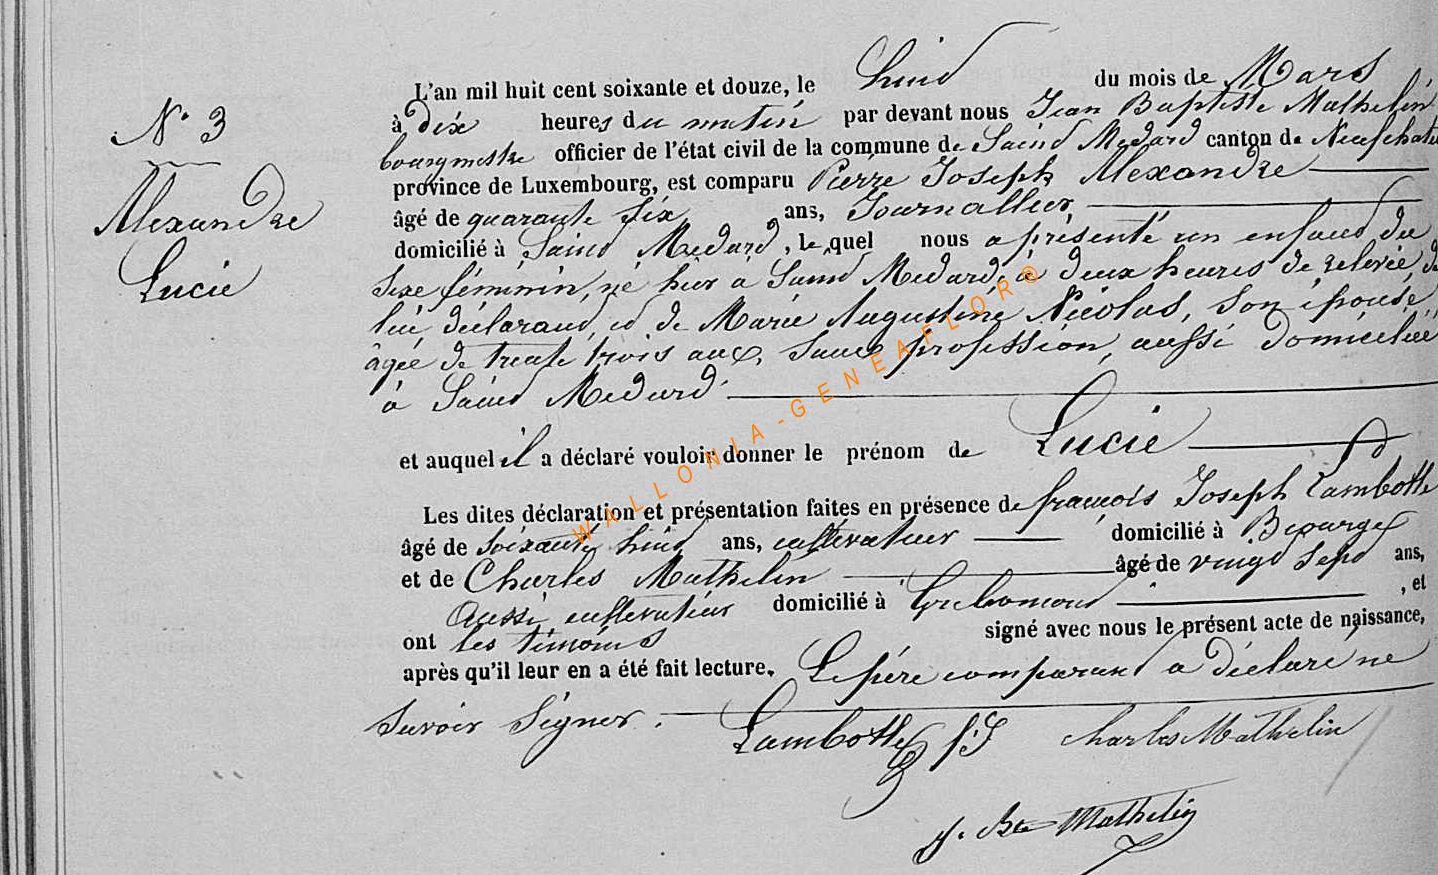 N° 3
Alexandre
Lucie
L'an mil huit cent soixante et douze, le huit du mois de Mars
à Dix heures du matin par devant nous Jean Baptiste Mathelin
bourgmestre officier de l'état civil de la commune de Saint Médard canton de Neufchate
province de Luxembourg, est comparu Pierre Joseph Alexandre
âgé de quarante six ans, Journallier,
domicilié à Saint Medard, le quel nous a présenté un enfant du
sexe féminin, né hier à Saint Medard, à deux heures de relevée, de
lui déclarant, et de Marie Augustine Nicolas, son épouse,
âgée de trente trois ans, sans profession, aussi domiciliée
à Saint Medard.
et auquel il a déclaré vouloir donner le prénom de Lucie
Les dites déclaration et présentation faites en présence de françois Joseph Lambotte
âgé de soixante huit ans, cultivateur domicilié à
et de Charles Mathelin âgé de vingt sept ans,
aussi cultivateur domicilié à Gribomont , et
ont les témoins signé avec nous le présent acte de naissance,
après qu'il leur en a été fait lecture. Le père comparant a déclaré ne
savoir signer.
Lambotte f.J Charles Mathelin
J. Bte Mathelin
WALLONIA-GENEAFLOR®